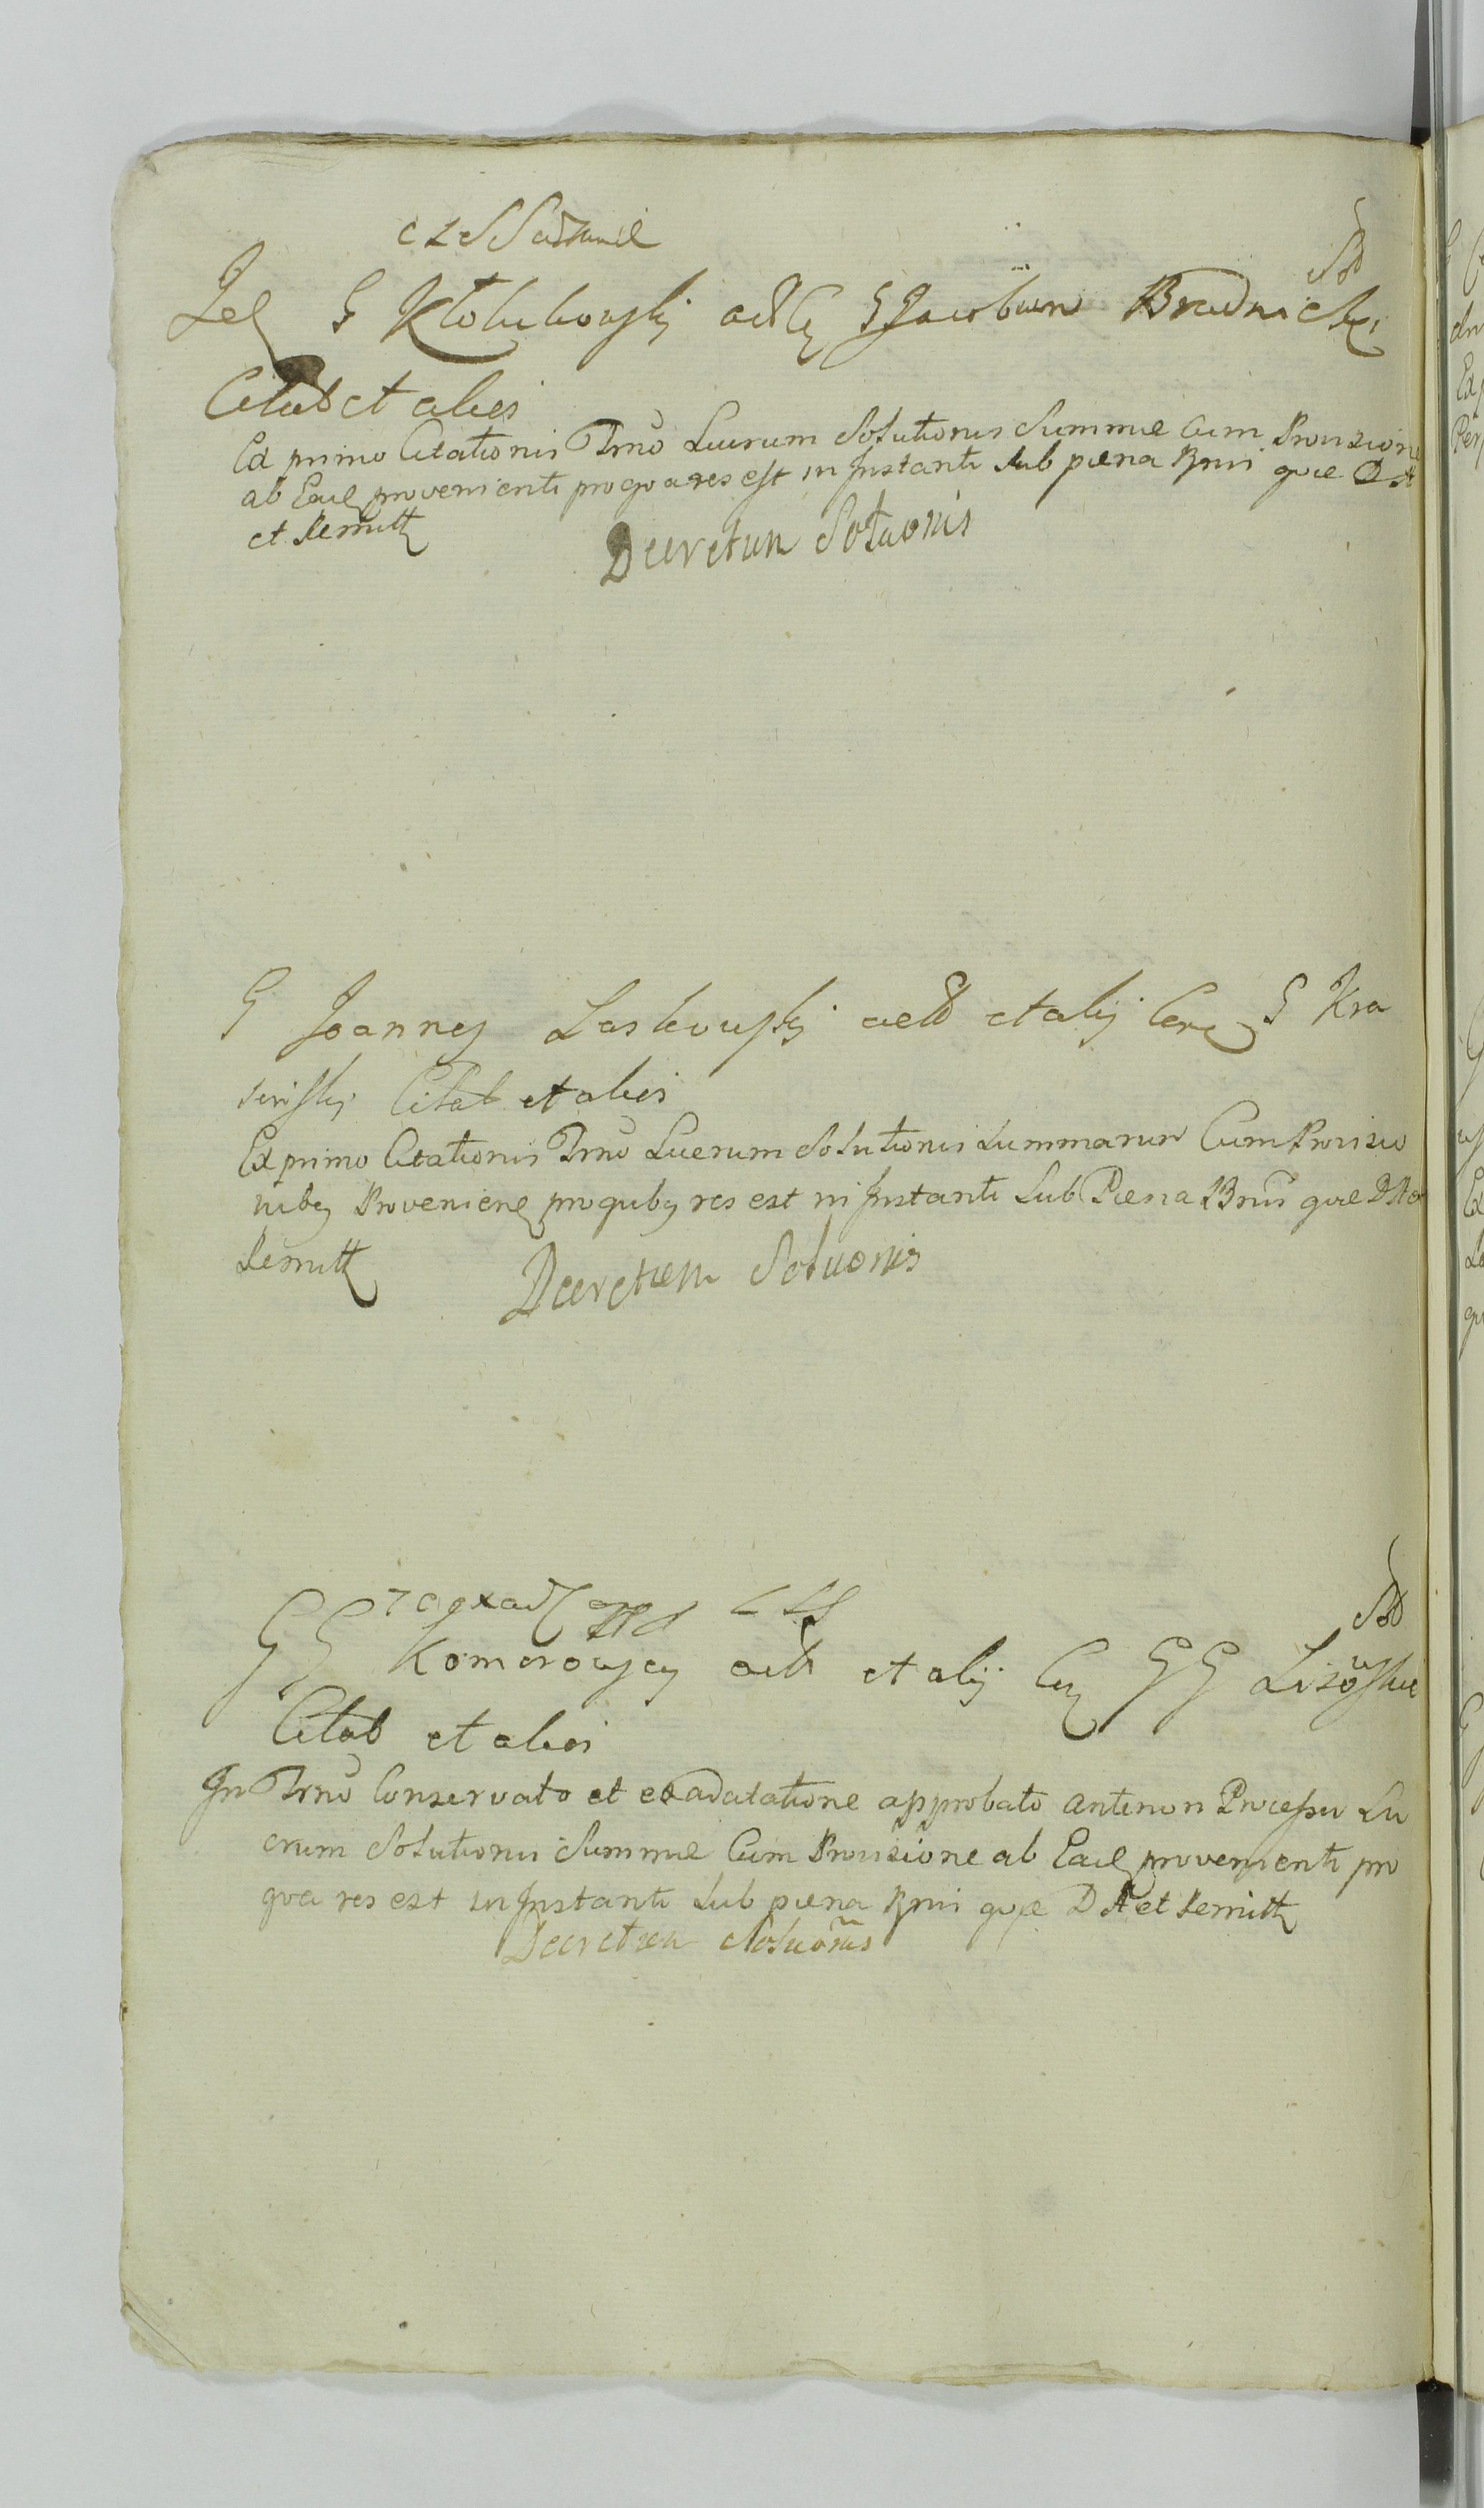 G Kłobukowskj actt G Jacobum Brudnicki
Citat et alies
Ex primo Citationis Trno Lucrum Solutionis Summæ Cum Provisione
ab Eaq provenienti pro qva res est in Instanti Sub pæna Bnni qvæ D A
et Remitt
Decretum Soluonis
G Joannes Laskowskj actt et alij Cer G Kra
sinskj Citat et alies
Ex primo Citationis Trno Lucrum Solutionis Summarum Cum Provisio
nibq Proveniene pro quibq res est in Instanti Sub Pæna Bnni qvæ D A et
Remitt
Decretum Soluonis
GG Komorowscy actt et alij Cer GG Lisowskie
Citat et alios
In Trno Conservato et ex adcitatione approbato anteriori Processu Lu
crum Solutionis Summæ Cum Provisione ab Eaq provenienti pro
qva res est in Instanti Sub pæna Bnni qvæ D A et Remitt
Decretum Soluonis